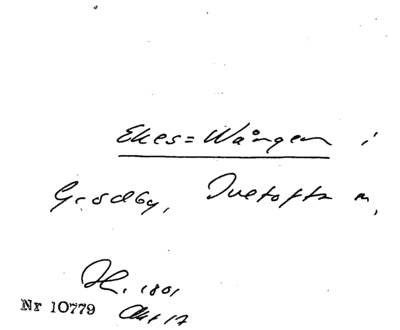 Ekes=Wången i
Gesdby, Tvetofta n,
H. 1801
Nr 10779 Akt 17